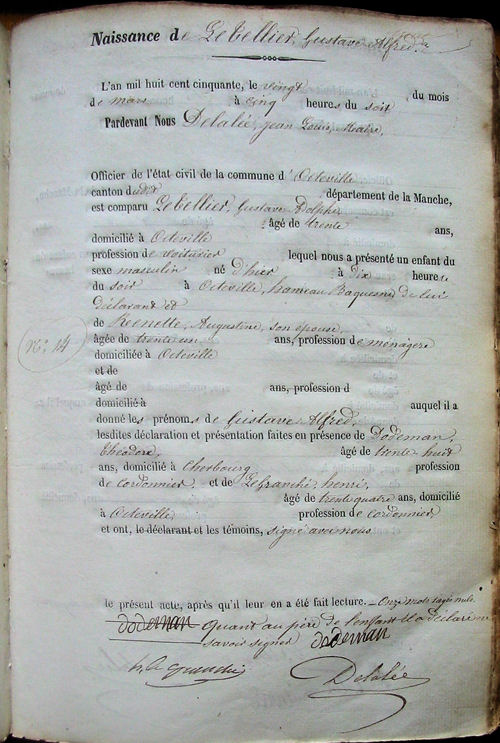 Naissance de Le Tellier, Gustave Alfred.
L'an mil huit cent cinquante, le vingt du mois
de mars à cinq heures du soir
Pardevant Nous Delalée, jean Louis, Maire,
Officier de l'état civil de la commune d'Octeville,
canton dudit département de la Manche,
est comparu Le Tellier, Gustave Dolphe,
âgé de trente ans,
domicilié à Octeville
profession de voiturier lequel nous a présenté un enfant du
sexe masculin né d'hier à dix heures
du soir à Octeville, hameau Baquesne de lui
déclarant et
de Reinette, Augustine, son épouse,
âgée de trente un ans, profession de ménagère
domiciliée à Octeville
N°. 14
et de
âgé de ans, profession d
domicilié à auquel il a
donné les prénoms de Gustave Alfred.
lesdites déclaration et présentation faites en présence de Dodeman,
théodore, âgé de trente huit
ans, domicilié à Cherbourg profession
de cordonnier, et de Lefranché, henri,
âgé de trente quatre ans, domicilié
à Octeville, profession de cordonnier,
et ont, le déclarant et les témoins, signé avec nous
le présent acte, après qu'il leur en a été fait lecture. Onze mots rayés nuls.
dodeman quant au père de l'enfant il a déclaré ne
savoir signer dodeman
Delalée